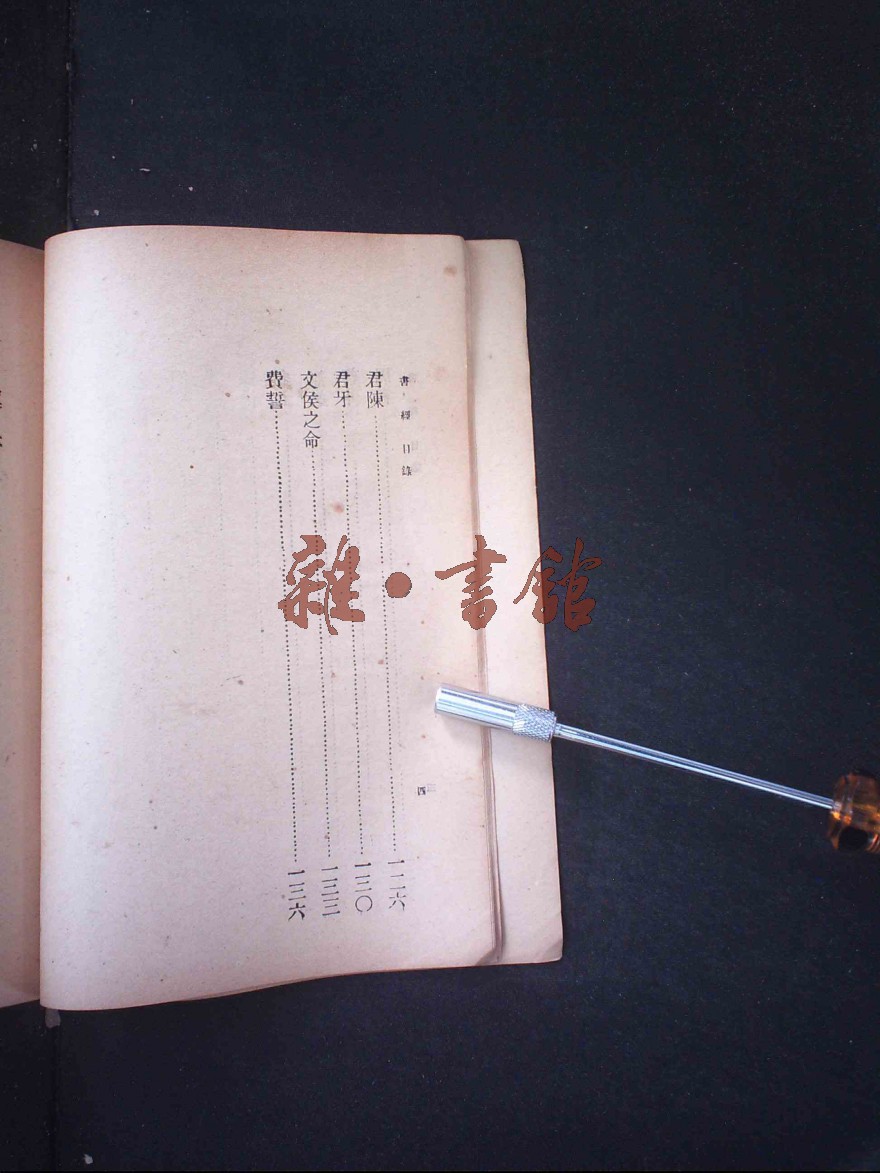 書經目錄
四
君陳……一二六
君牙……一三〇
文侯之命……一三三
費誓……一三六
雜·書館